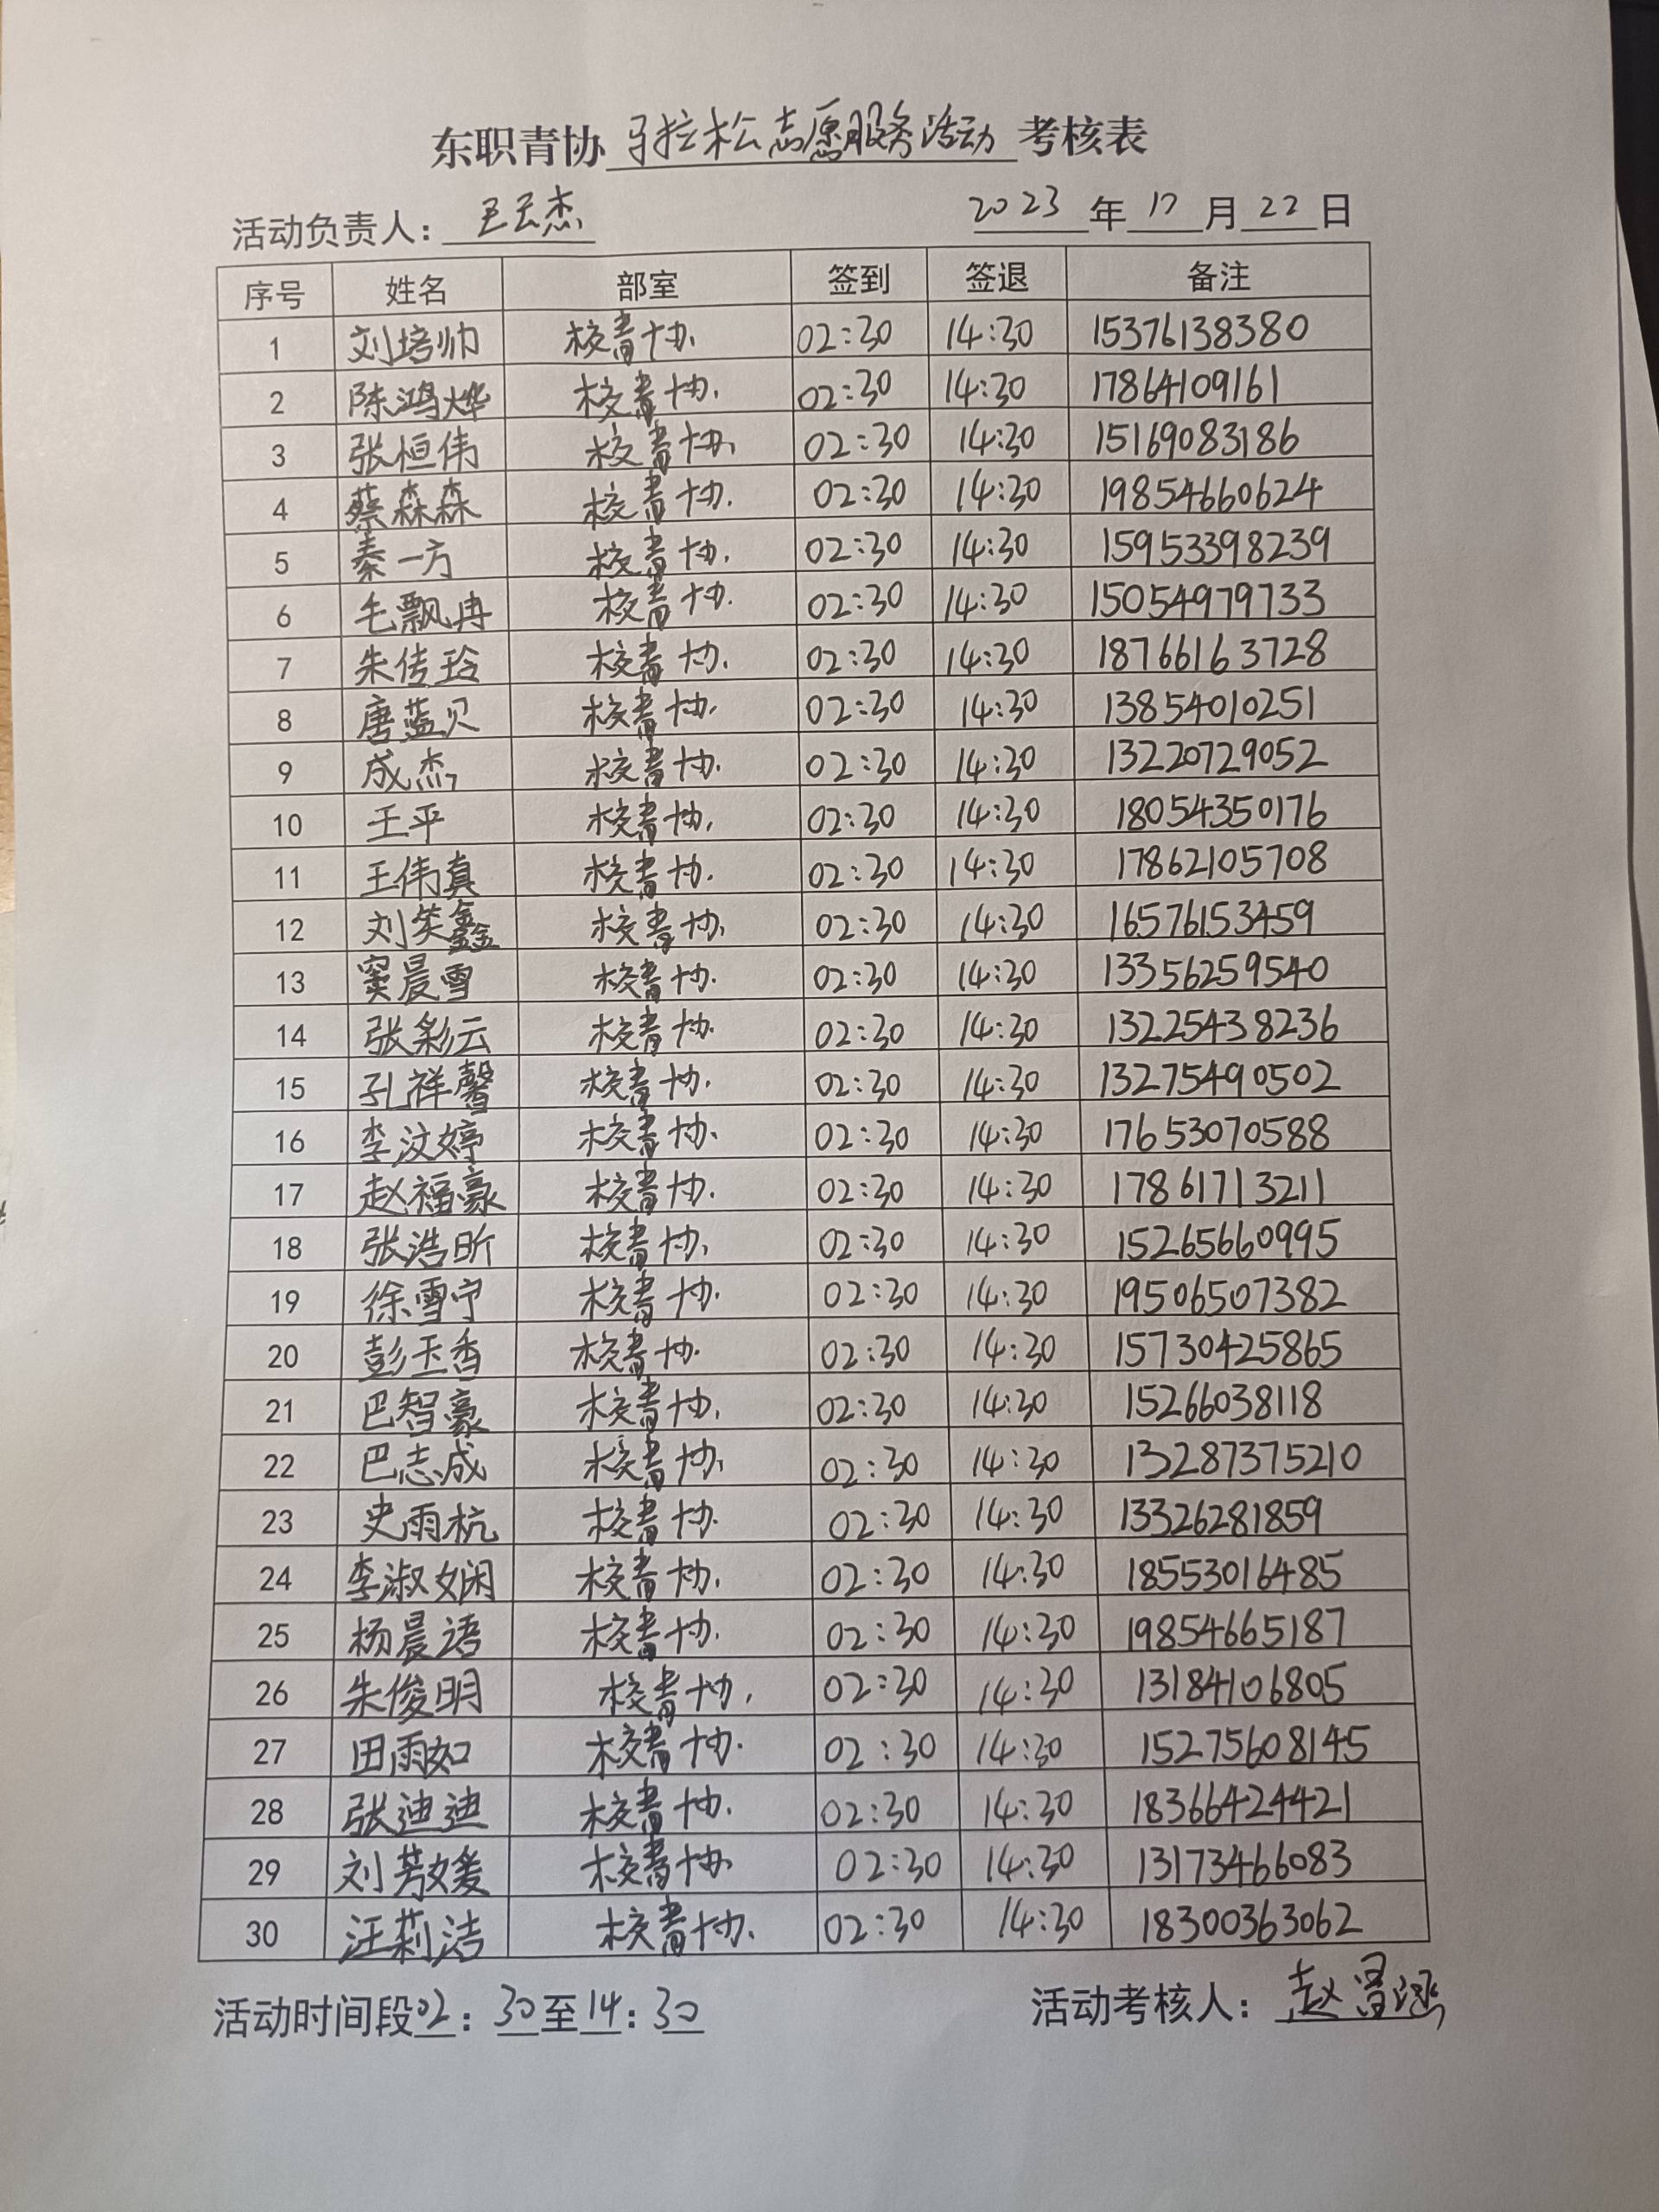 东职青协马拉松志愿服务活动考核表
活动负责人：王云杰 2023年10月22日
序号 姓名 部室 签到 签退 备注
1 刘培帅 校青协 02:30 14:30 15376138380
2 陈鸿烨 校青协 02:30 14:30 17864109161
3 张恒伟 校青协 02:30 14:30 15169083186
4 蔡森森 校青协 02:30 14:30 19854660624
5 秦一方 校青协 02:30 14:30 15953398239
6 毛飘冉 校青协 02:30 14:30 15054979733
7 朱传玲 校青协 02:30 14:30 18766163728
8 唐蓝贝 校青协 02:30 14:30 13854010251
9 成杰 校青协 02:30 14:30 13220729052
10 王平 校青协 02:30 14:30 18054350176
11 王伟真 校青协 02:30 14:30 17862105708
12 刘笑鑫 校青协 02:30 14:30 16576153459
13 窦晨雪 校青协 02:30 14:30 13356259540
14 张彩云 校青协 02:30 14:30 13225438236
15 孔祥馨 校青协 02:30 14:30 13275490502
16 李汶婷 校青协 02:30 14:30 17653070588
17 赵福豪 校青协 02:30 14:30 17861713211
18 张浩昕 校青协 02:30 14:30 15265660995
19 徐雪宁 校青协 02:30 14:30 19506507382
20 彭玉香 校青协 02:30 14:30 15730425865
21 巴智豪 校青协 02:30 14:30 15266038118
22 巴志成 校青协 02:30 14:30 13287375210
23 史雨杭 校青协 02:30 14:30 13326281859
24 李淑娴 校青协 02:30 14:30 18553016485
25 杨晨语 校青协 02:30 14:30 19854665187
26 朱俊明 校青协 02:30 14:30 13184106805
27 田雨如 校青协 02:30 14:30 15275608145
28 张迪迪 校青协 02:30 14:30 18366424421
29 刘芳媛 校青协 02:30 14:30 13173466083
30 汪莉洁 校青协 02:30 14:30 18300363062
活动时间段02：30至14：30 活动考核人：赵